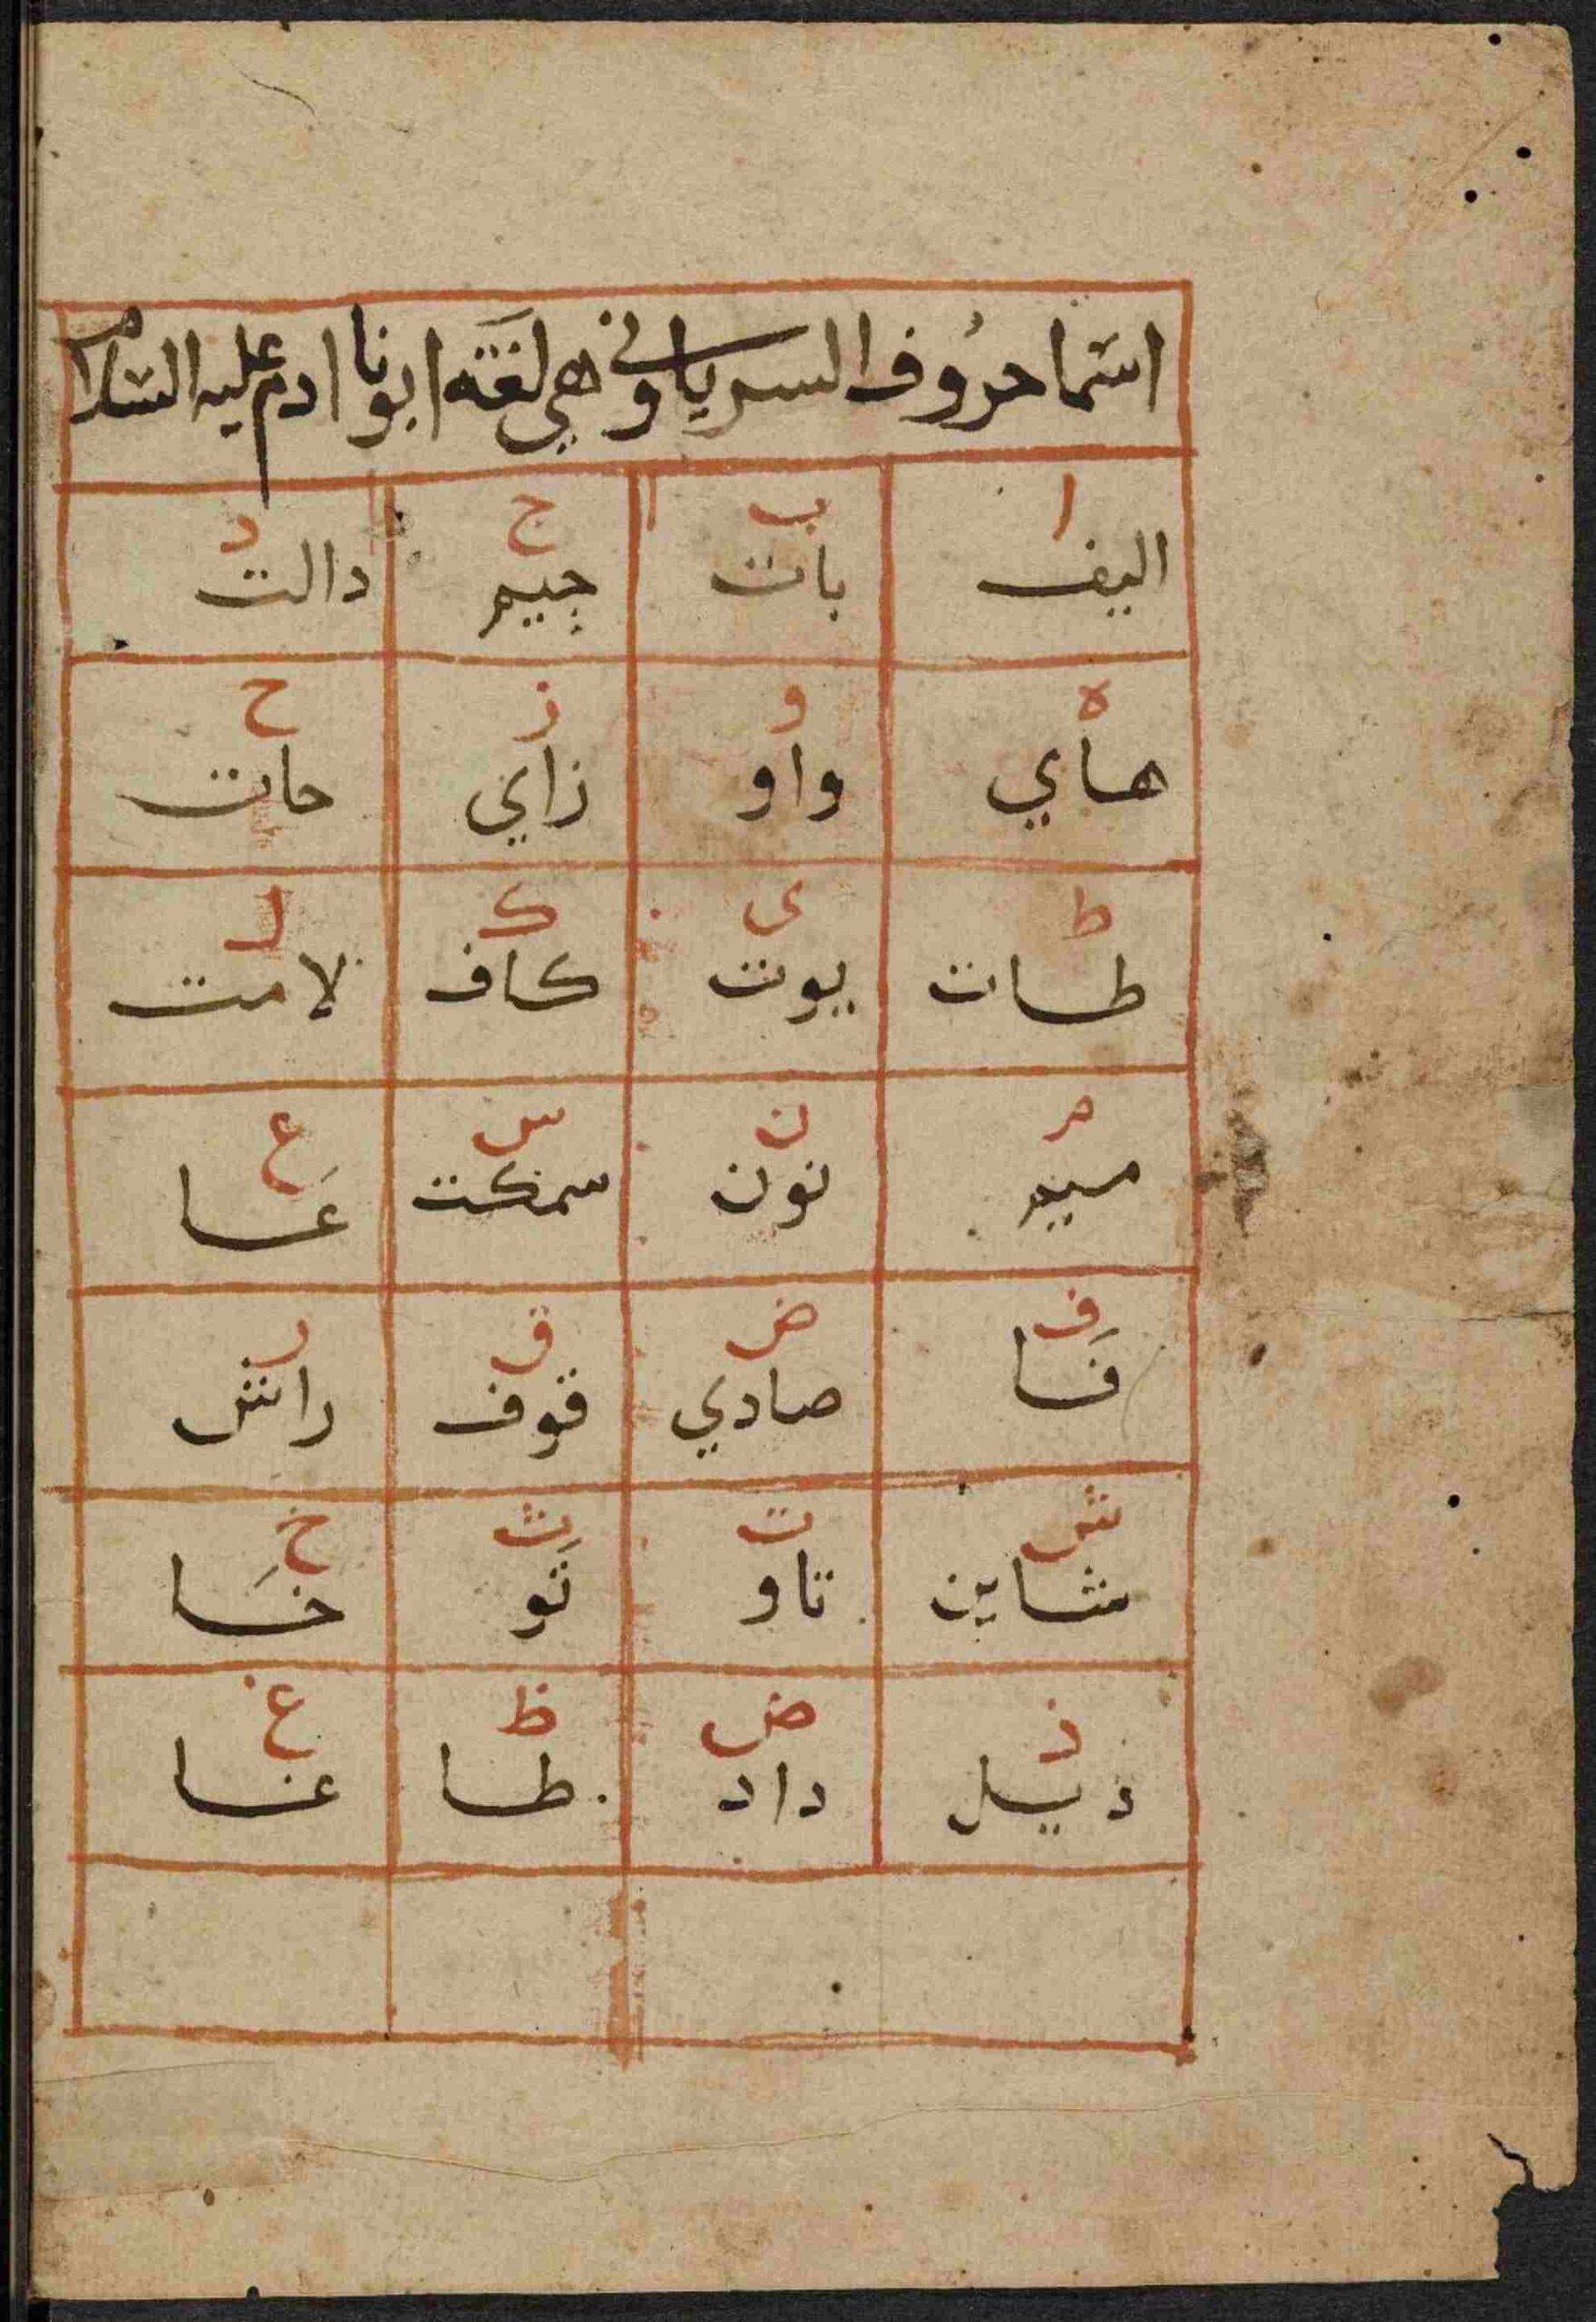 اسما حروف السرياني وهي لغة ابونا ادم عليه السلام
ا ب ج د
اليف بات جيم دالت
ه و ز ح
هاي واو زاي حات
ط ى ك ل
طات يوت كاف لامت
م ن س ع
ميم نون سمكت عا
ف ض ق ر
فا صادي قوف راش
ش ت ث خ
شاين تاو ثو خا
ذ ض ظ غ
ذيل داد ظا غا